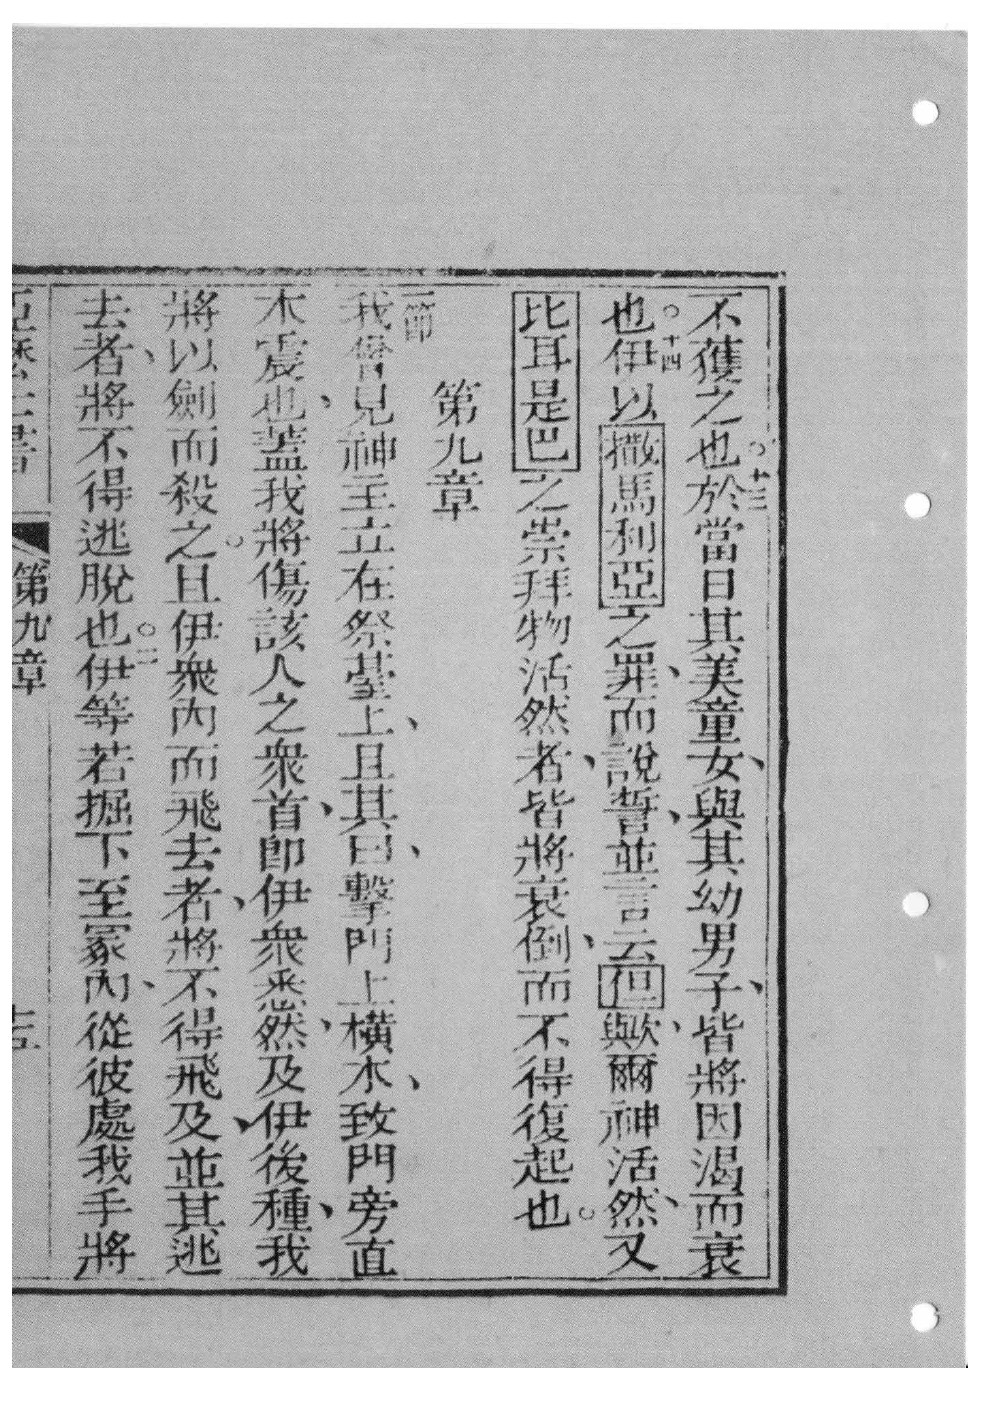 不獲之也。十三於當日其美童女、與其幼男子、皆將因渴而衰
也。十四伊以撒馬利亞之罪、而說誓、並言云但與、歟爾神活然、又
比耳是巴之崇拜物活然者、皆將衰倒、而不得復起也。
第九章
一節我曾見神主立在祭臺上、且其曰、擊門上橫木、致門旁直
木震也、蓋我將傷該人之衆首、卽伊衆悉然、及伊後種、我
將以劍而殺之。且伊衆內而飛去者、將不得飛及、並其逃
去者、將不得逃脫也。二伊等若掘下至冢內、從彼處我手將
第九章